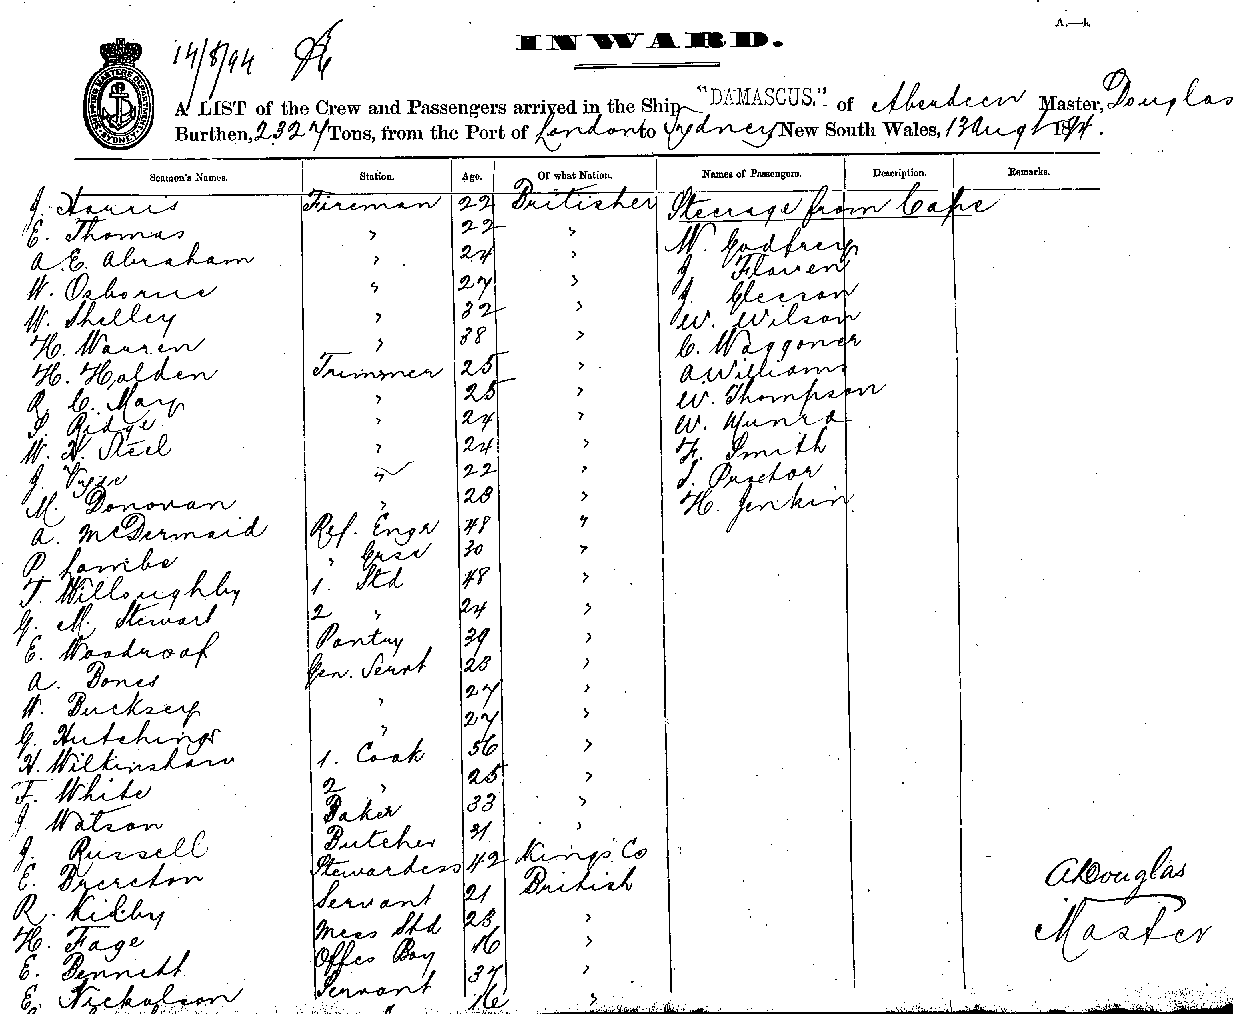 A.—1.
14/8/94
INWARD.
A LIST of the Crew and Passengers arrived in the Ship "DAMASCUS." of Aberdeen Master, Douglas
Burthen, 2327 Tons, from the Port of London to Sydney New South Wales, 13 Augt 1894.
Seaman's Names. Station. Age. Of what Nation. Names of Passengers. Description. Remarks.
J. Harris Fireman 22 Britisher Steerage from Cape
E. Thomas " 22 " W. Godfrey
A. E. Abraham " 24 " J. Flowen
W. Osborne " 27 " J. Gleeson
W. Shelley " 32 " W. Wilson
H. Warren " 38 " C. Waggoner
H. Holden Trimmer 25 " A Williams
R. C. Mary " 25 " W. Thompson
S. Ridge " 24 " W. Munro
W. H. Steel " 24 " F. Smith
J. Vyse " 22 " J. Proctor
M. Donovan " 28 " H. Jenkin
A. McDermaid Ref. Engr 48 "
P. Lambe " Grsr 30 "
T. Willoughby 1. Std 48 "
G. M. Stewart 2 " 24 "
E. Woodroof Pantry 39 "
A. Bones Gen. Servt 23 "
W. Bucksey " 27 "
G. Hutchings " 27 "
H. Wilkinshaw 1. Cook 56 "
F. White 2 " 25 "
J Watson Baker 33 "
J. Russell Butcher 31 "
E. Brereton Stewardess 42 Kings Co
R. Kilby Servant 21 British
H. Fage Mess Std 23 "
E. Bennett Offcs Boy 16 "
E. Nickolson Servant 37 "
16 "
A Douglas
Master